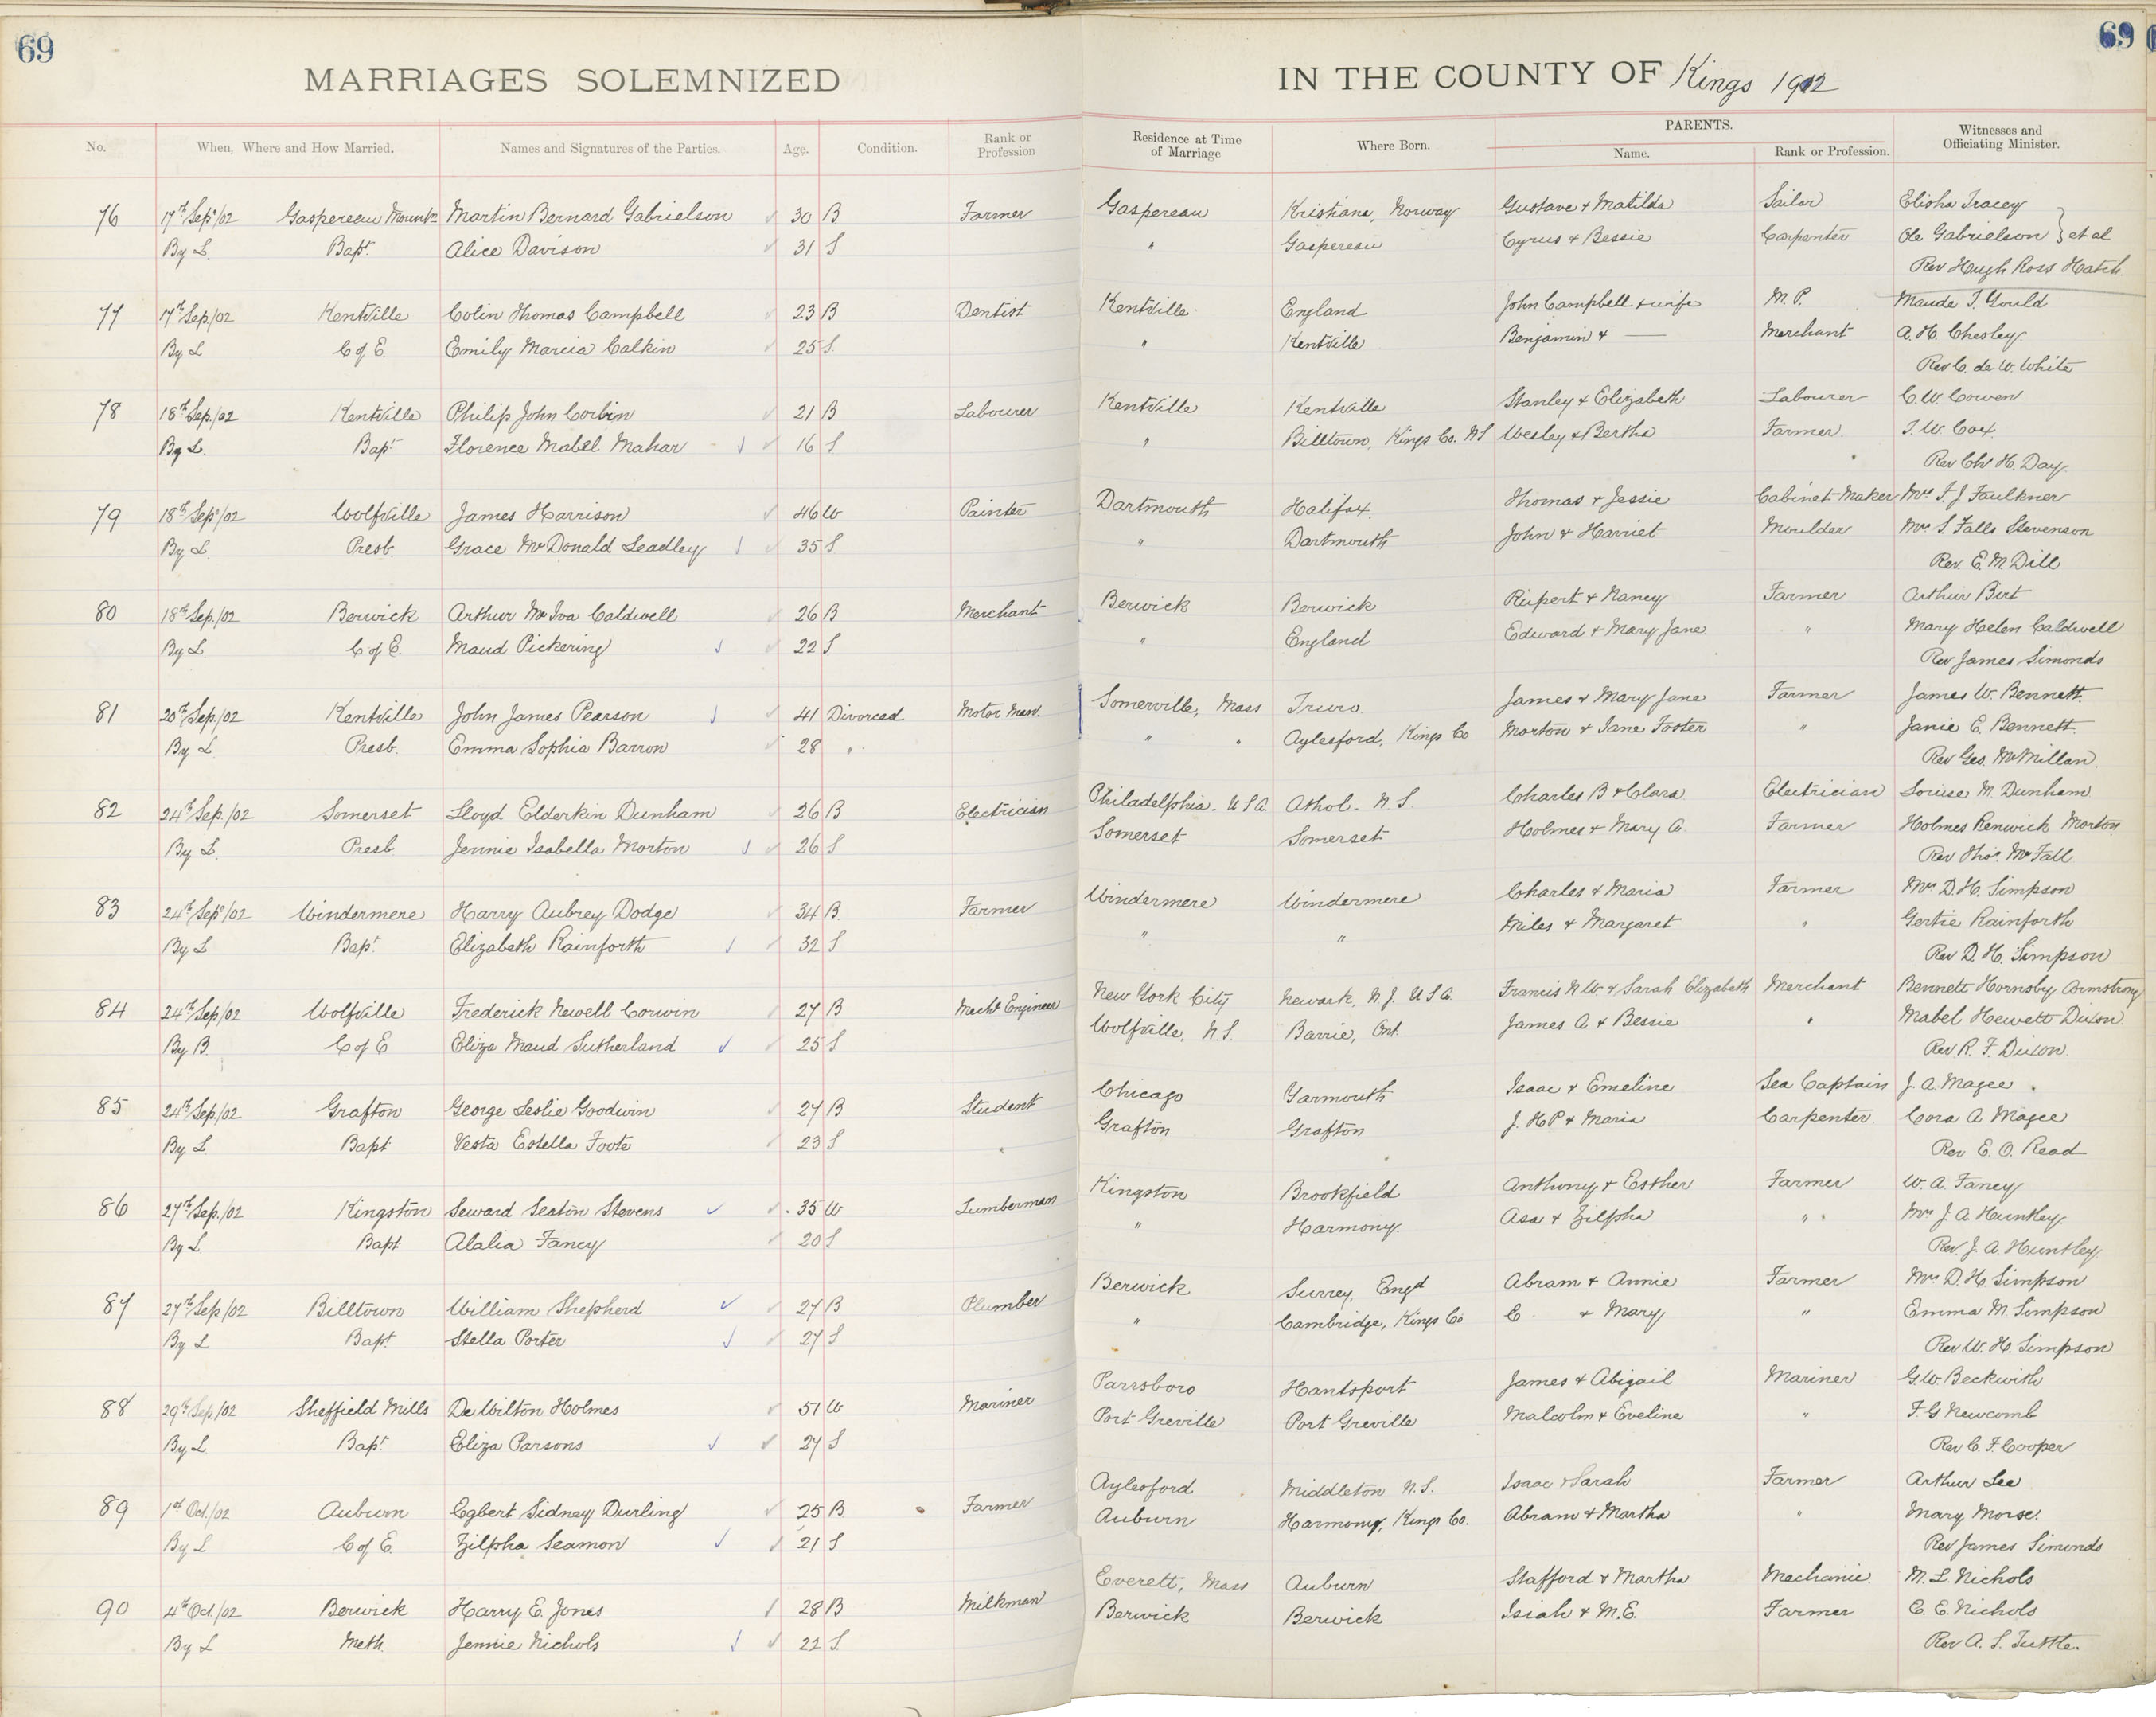 69
69
MARRIAGES SOLEMNIZED IN THE COUNTY OF Kings 1902
No. When, Where and How Married. Names and Signatures of the Parties. Age. Condition. Rank or Profession Residence at Time of Marriage Where Born. PARENTS. Name. Rank or Profession. Witnesses and Officiating Minister.
76 17th Sep/02 Gaspereau Mount Martin Bernard Gabrielson 30 B Farmer Gaspereau Kristiana, Norway Gustave & Matilda Sailor Elisha Tracey
By L. Bapt. Alice Davison 31 S " Gaspereau Cyrus & Bessie Carpenter Ole Gabrielson } et al
Rev Hugh Ross Hatch
77 17th Sep./02 Kentville Colin Thomas Campbell 23 B Dentist Kentville England John Campbell & wife M.P. Maude I. Gould
By L C of E. Emily Marcia Calkin 25 S. " Kentville Benjamin & — Merchant A. H. Chesley
Rev C. de W. White
78 18th Sep./02 Kentville Philip John Corbin 21 B Labourer Kentville Kentville Stanley & Elizabeth Labourer C. W. Cowen
By L. Bapt Florence Mabel Mahar 16 S " Billtown, Kings Co. N S Wesley & Bertha Farmer J. W. Cox
Rev Ch H. Day
79 18th Sep/02 Wolfville James Harrison 46 W Painter Dartmouth Halifax Thomas & Jessie Cabinet-Maker Mrs F. J. Faulkner
By L. Presb. Grace McDonald Leadley 35 S " Dartmouth John & Harriet Moulder Mrs S. Falls Stevenson
Rev. E. M. Dill
80 18th Sep./02 Berwick Arthur McIva Caldwell 26 B Merchant Berwick Berwick Rupert & Nancy Farmer Arthur Birt
By L C of E. Maud Pickering 22 S. " England Edward & Mary Jane " Mary Helen Caldwell
Rev James Simonds
81 20th Sep/02 Kentville John James Pearson 41 Divorced Motor Man. Somerville, Mass Truro James & Mary Jane Farmer James W. Bennett
By L Presb. Emma Sophia Barron 28 " " " Aylesford, Kings Co Morton & Jane Foster " Janie E. Bennett
Rev Geo. McMillan.
82 24th Sep./02 Somerset Lloyd Elderkin Dunham 26 B Electrician Philadelphia - U S A. Athol - N. S. Charles B & Clara Electrician Louise M Dunham
By L Presb Jennie Isabella Morton 26 S Somerset Somerset Holmes & Mary A. Farmer Holmes Renwick Morton
Rev Thos. McFall
83 24th Sep/02 Windermere Harry Aubrey Dodge 34 B. Farmer Windermere Windermere Charles & Maria Farmer Mrs D. H. Simpson
By L Bapt. Elizabeth Rainforth 32 S " " Miles & Margaret " Gertie Rainforth
Rev D. H. Simpson
84 24th Sep/02 Wolfville Frederick Newell Corwin 27 B Mechl Engineer New York City Newark, N. J. U S A. Francis N W. & Sarah Elizabeth Merchant Bennett Hornsby Armstrong
By B. C of E Eliza Maud Sutherland 25 S Wolfville, N. S. Barrie, Ont. James A & Bessie " Mabel Hewett Dixon.
Rev R. F. Dixon.
85 24th Sep./02 Grafton George Leslie Goodwin 27 B Student Chicago Yarmouth Isaac & Emeline Sea Captain J. A. Magee
By L Bapt Vesta Estella Foote 23 S Grafton Grafton J. H P & Maria Carpenter Cora A Magee
Rev E. O. Read
86 27th Sep./02 Kingston Seward Seaton Stevens 35 W Lumberman Kingston Brookfield Anthony & Esther Farmer W. A. Fancy
By L Bapt Alalia Fancy 20 S " Harmony. Asa & Zilpha " Mrs J. A. Huntley
Rev. J. A. Huntley
87 27th Sep/02 Billtown William Shepherd 27 B Plumber Berwick Surrey, Engd Abram & Annie Farmer Mrs D. H. Simpson
By L Bapt. Stella Porter 27 S " Cambridge, Kings Co C & Mary " Emma M. Simpson
Rev W. H. Simpson
88 29th Sep/02 Sheffield Mills De Wilton Holmes 57 W Mariner Parrsboro Hantsport James & Abigail Mariner G. W. Beckwith
By L Bapt. Eliza Parsons 27 S Port Greville Port Greville Malcolm & Eveline " F. G. Newcomb
Rev C. F. Cooper
89 1st Oct./02 Auburn Egbert Sidney Durling 25 B. Farmer Aylesford Middleton N. S. Isaac & Sarah Farmer Arthur Lee
By L C of E. Zilpha Seamon 21 S Auburn Harmony, Kings Co. Abram & Martha " Mary Morse.
Rev James Simonds
90 4th Oct./02 Berwick Harry E. Jones 28 B Milkman Everett, Mass Auburn Stafford & Martha Mechanic. M. L. Nichols
By L Meth Jennie Nichols 22 S. Berwick Berwick Isiah & M. E. Farmer C. E. Nichols
Rev A. S. Tuttle.